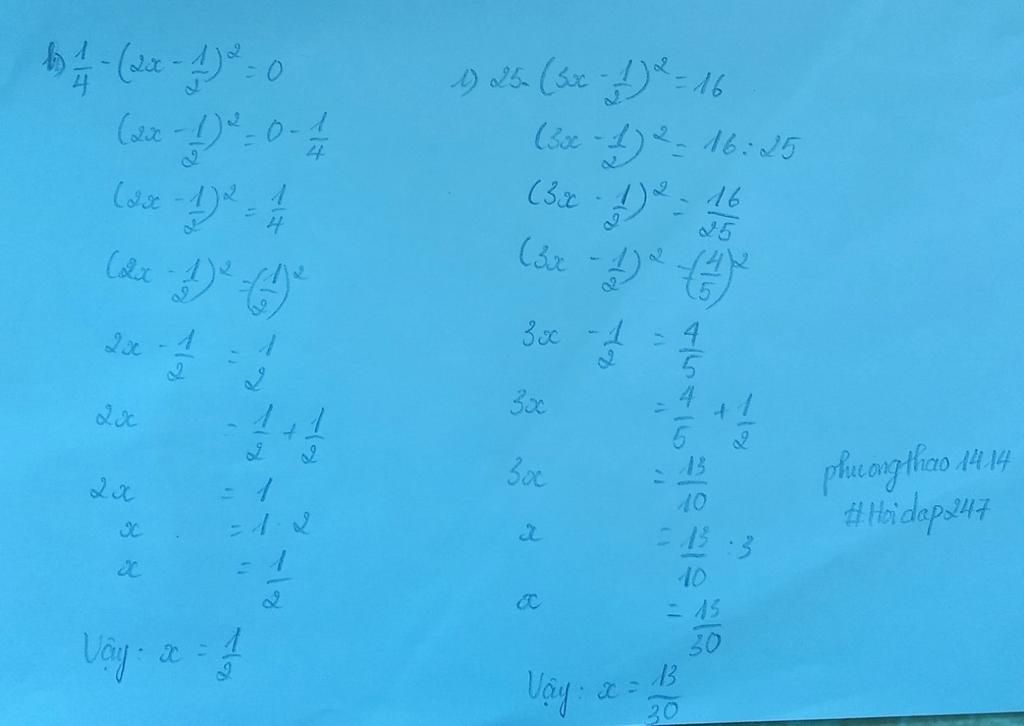 h) 1/4 - (2x - 1/2)² = 0
(2x - 1/2)² = 0 - 1/4
(2x - 1/2)² = 1/4
(2x - 1/2)² = (1/2)²
2x - 1/2 = 1/2
2x = 1/2 + 1/2
2x = 1
x = 1 : 2
x = 1/2
Vậy: x = 1/2
1) 25 - (3x - 1/2)² = 16
(3x - 1/2)² = 16 : 25
(3x - 1/2)² = 16/25
(3x - 1/2)² = (4/5)²
3x - 1/2 = 4/5
3x = 4/5 + 1/2
3x = 13/10
x = 13/10 : 3
x = 13/30
Vậy: x = 13/30
phuongthao 1414
#Hoidap247